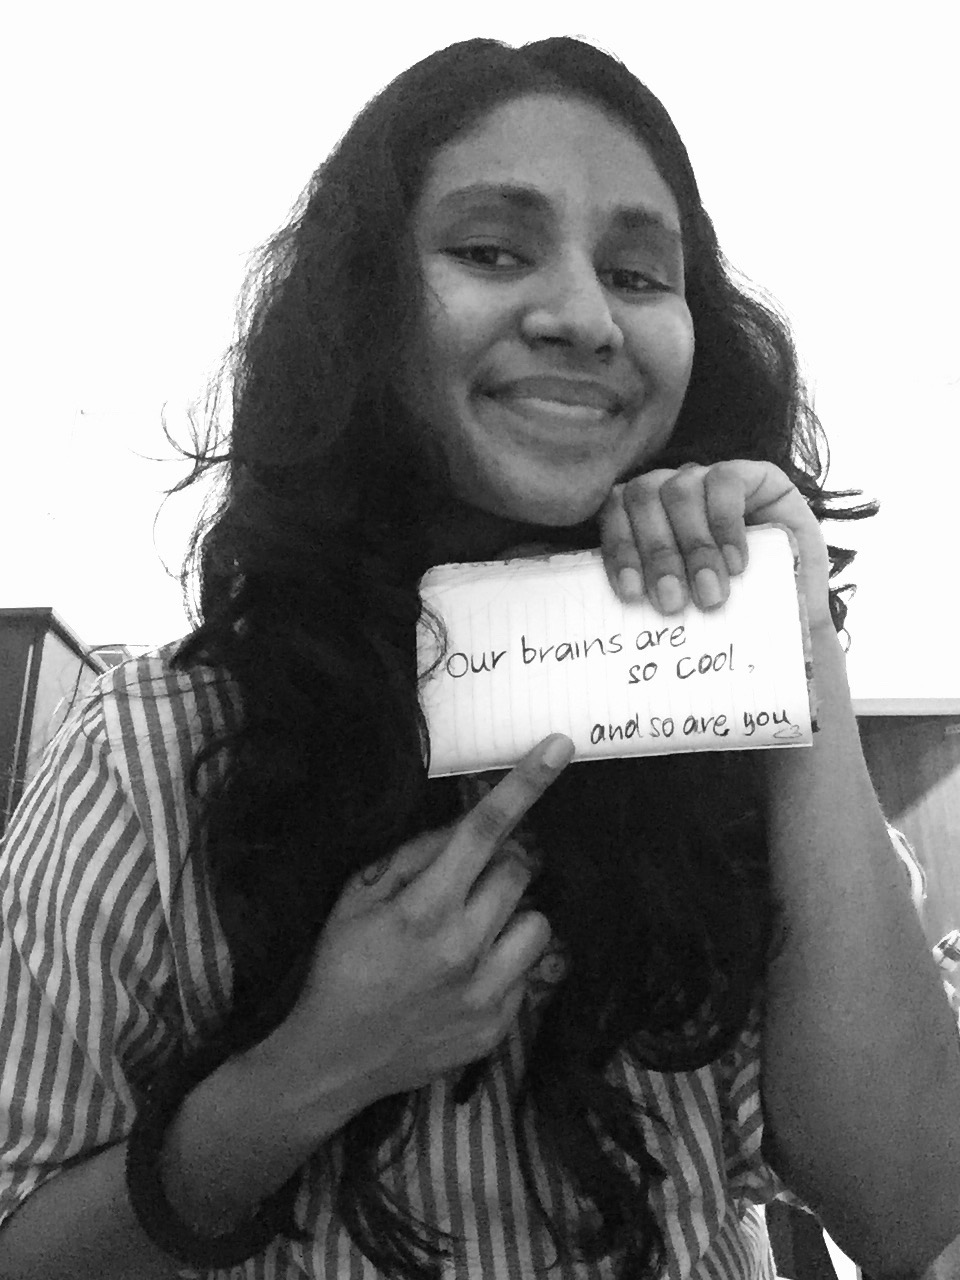 our brains are
so cool,
and so are you
<3